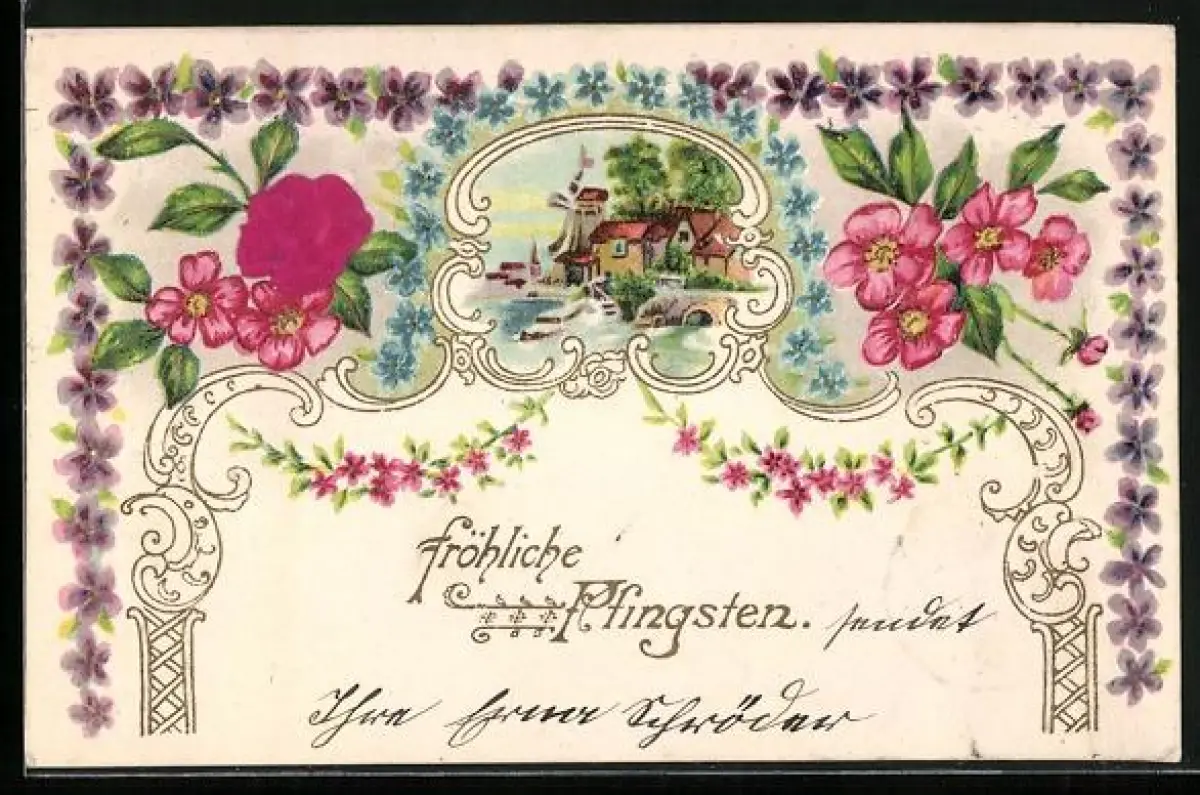 Fröhliche
Pfingsten. sendet
Ihre Erna Schröder